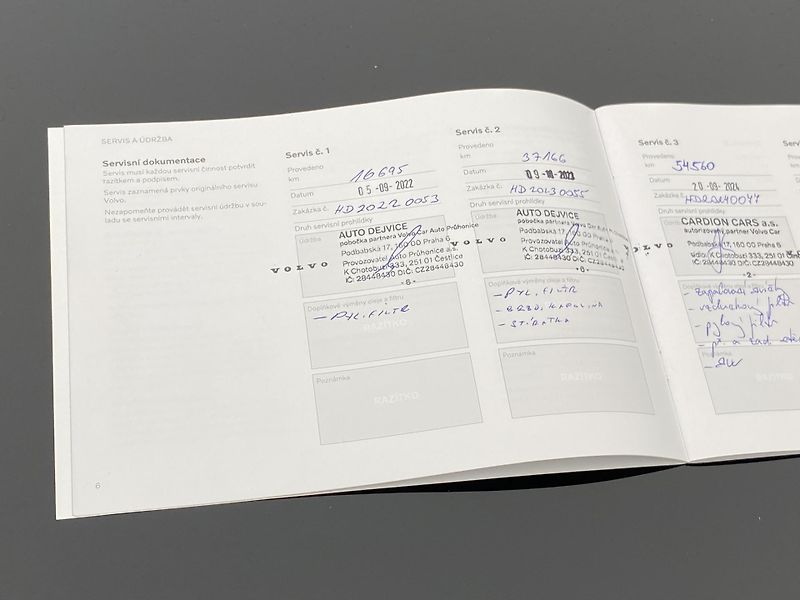 SERVIS A ÚDRŽBA
Servisní dokumentace
Servis musí každou servisní činnost potvrdit
razítkem a podpisem.
Servis zaznamená prvky originálního servisu
Volvo.
Nezapomeňte provádět servisní údržbu v sou-
ladu se servisními intervaly.
6
Servis č. 1
Provedeno
km
16695
Datum
05-09-2022
Zakázka č.
HD20220053
Druh servisní prohlídky
Údržba
AUTO DEJVICE
pobočka partnera Volvo Car Auto Průhonice
Podbabská 17, 160 00 Praha 6
VOLVO
Provozovatel Auto Průhonice a.s.
K Chotobuzi 333, 251 01 Čestlice
IČ: 28448430 DIČ: CZ28448430
-6-
Doplňkové výměny oleje a filtru
- PYL. FILTR
RAZÍTKO
Poznámka
RAZÍTKO
Servis č. 2
Provedeno
km
37166
Datum
09-10-2023
Zakázka č.
HD20230055
Druh servisní prohlídky
Údržba
AUTO DEJVICE
pobočka partnera Volvo Car Auto
Podbabská 17, 160 00 Praha 6
VOLVO
Provozovatel Auto Průhonice a.s.
K Chotobuzi 333, 251 01 Čestlice
IČ: 28448430 DIČ: CZ28448430
-6-
Doplňkové výměny oleje a filtru
- PYL. FILTR
- BRZD. KAPALINA
- STÍRÁTKA
Poznámka
RAZÍTKO
Servis č. 3
Provedeno
km
54560
Datum
20-09-2024
Zakázka č.
Druh servisní prohlídky
CARDION CARS a.s.
autorizovaný partner Volvo Car
Podbabská 17, 160 00 Praha 6
VOLVO
Sídlo: K Chotobuzi 333, 251 01
IČ: 28448430 DIČ: CZ28448430
-2-
- zapalovací svíčky
- vzduchový filtr
- pylový filtr
Poznámka
- SW
RAZÍTKO